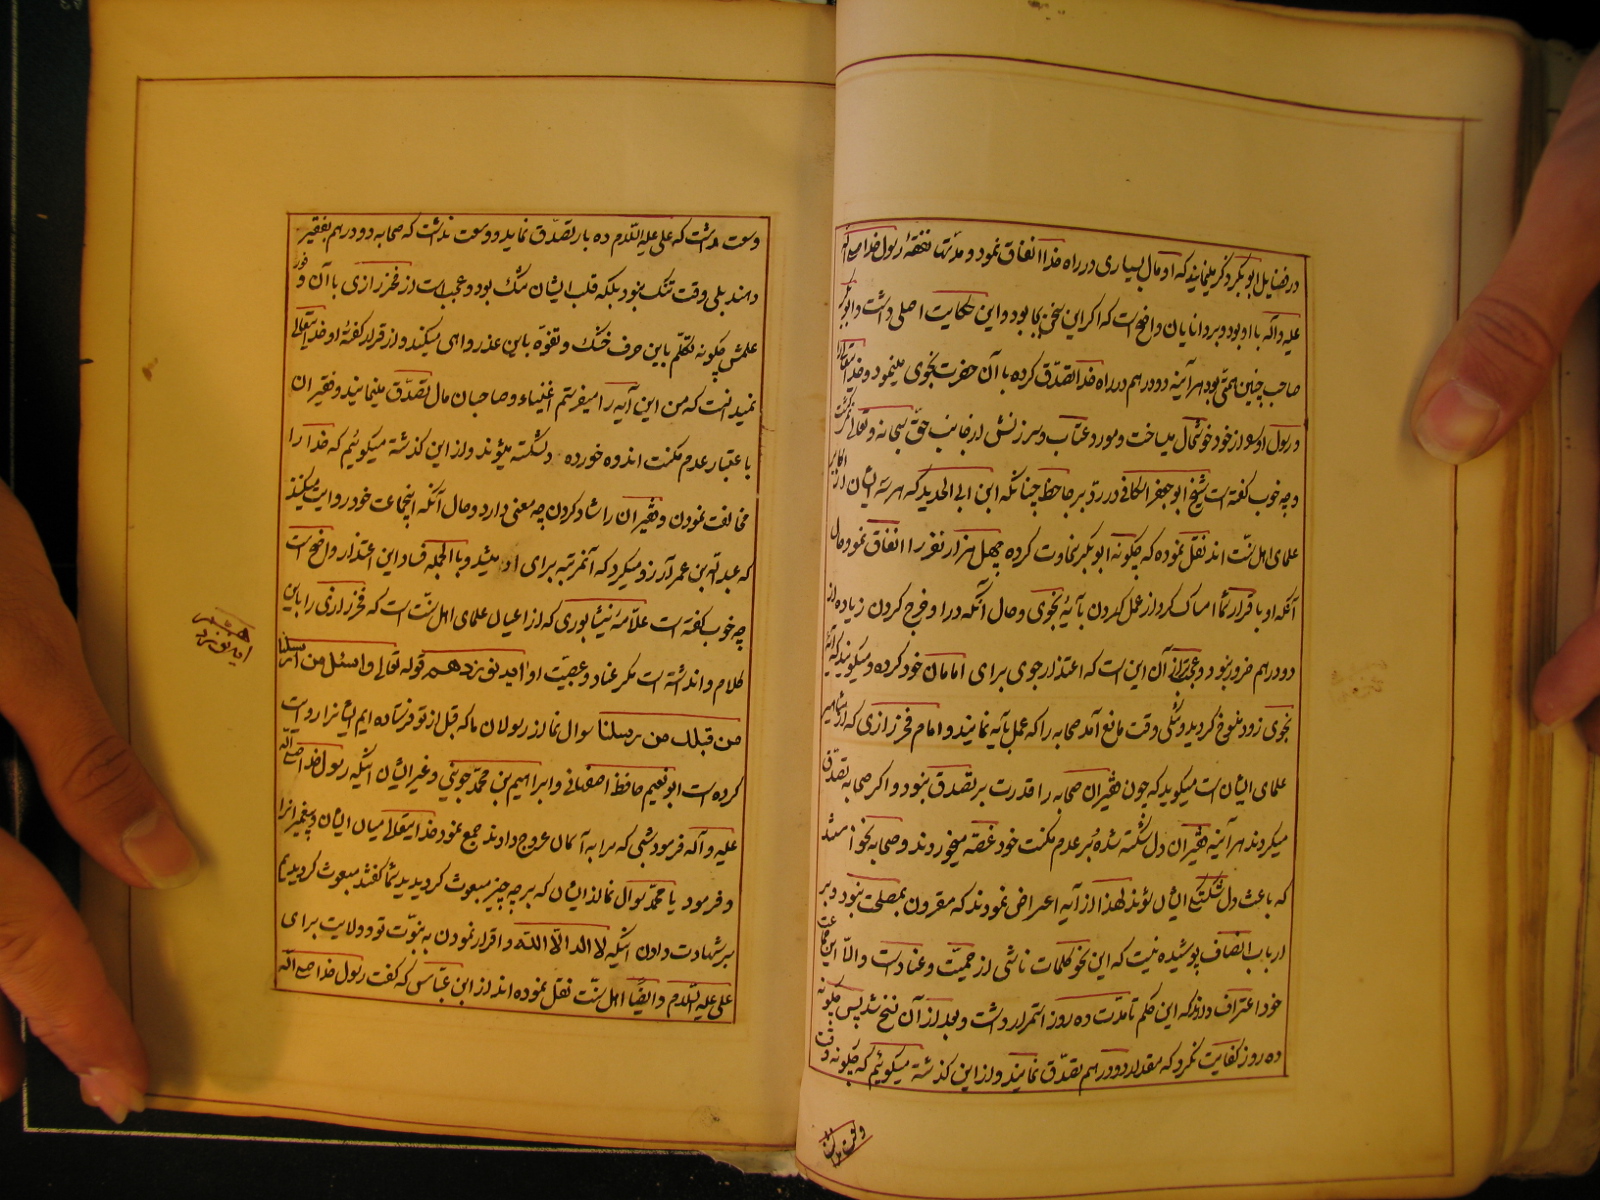 در فضایل ابو بکر ذکر مینمایند که او مال بسیاری در راه خدا انفاق نمود و مدتها نفقهٔ رسول خدا صلی الله
علیه و آله با او بود و بر دانایان واضح است که اکر این سخن بجا بود و این حکایت اصلی داشت و ابو بکر
صاحب چنین همتی بود هر آینه دو درهم در راه خدا تصدّق کرده با آن حضرت نجوی مینمود و خدایتعالی
و رسول او را از خود خوشحال میساخت و مورد عتاب و سرزنش از جانب حق سبحانه و تعالی نمیکشت
و چه خوب کفته است شیخ ابو جعفر اسکافی در رد بر جاحظ چنانکه ابن ابی الحدید که هر سه ایشان از اکابر
علمای اهل سنّت اند نقل نموده که چکونه ابو بکر سخاوت کرده چهل هزار نفر را انفاق نمود و حال
آنکه او با قرار شما امساک کرد از عمل کردن بآیهٔ نجوی و حال آنکه در او خرج کردن زیاده از
دو درهم ضرور نبود و عجبتر از آن این است که اعتذار جوی برای امامان خود کرده و میکویند که آیه
نجوی زود منسوخ کردید و تنکی وقت مانع آمد صحابه را که عمل بآیه نمایند و امام فخر رازی که از مشاهیر
علمای ایشان است میکوید که چون فقیران صحابه را قدرت بر تصدق نبود و اکر صحابه تصدق
میکردند هر آینه فقیران دل شکسته شده بر عدم مکنت خود غصه میخوردند و صحابه نخواستند
که باعث دل شکستکی ایشان شوند لهذا از آیه اعراض نمودند که مقرون بمصلحت نبود و بر
ارباب انصاف پوشیده نیست که این نحو کلمات ناشی از حمیّت و عناد است و الّا این جماعت
خود اعتراف دارند که این حکم تا مدت ده روز استمرار داشت و بعد از آن نسخ شد پس چکونه
ده روز کفایت نکرد که مقدار دو درهم تصدّق نمایند و از این کذشته میکوئیم که چکونه وقت
وسعت داشت که علی علیه السّلام ده بار تصدّق نماید و وسعت نداشت که صحابه دو درهم بفقیر
دهند بلی وقت تنک نبود بلکه قلب ایشان تنک بود و عجب است از فخر رازی با آن وفور
علمش چکونه تکلّم باین حرف خنک و تفوّه باین عذر واهی میکند و از قرار کفتهٔ او خدایتعالی
نمیدانست که من این آیه را میفرستم اغنیاء و صاحبان مال تصدّق مینمایند و فقیران
باعتبار عدم مکنت اندوه خورده دلشکسته میشوند و از این کذشته میکوئیم که خدا را
مخالفت نمودن و فقیران را شاد کردن چه معنی دارد و حال آنکه اینجماعت خود روایت میکنند
که عبد الله بن عمر آرزو میکرد که آنمرتبه برای او میشد و بالجمله فساد این اعتذار واضح است
چه خوب کفته است علامهٔ نیشابوری که از اعیان علمای اهل سنّت است که فخر رازی را باین
کلام وا نداشته است مکر عناد و عصبیّت او آیهٔ نوزدهم قوله تعالی واسئل من ارسلنا
من قبلک من رسلنا سوال نما از رسولان ما که قبل از تو فرستاده ایم ایشانرا روایت
کرده است ابو نعیم حافظ اصفهانی و ابراهیم بن محمّد جوینی و غیر ایشان اینکه رسول خدا صلی الله
علیه و آله فرمود شبی که مرا به آسمان عروج دادند جمع نمود خدایتعالی میان ایشان و پیغمبرانرا
و فرمود یا محمّد سوال نما از ایشان که بر چه چیز مبعوث کردیدید شما کفتند مبعوث کردیدیم
بر شهادت دادن اینکه لا اله الّا اللّه و اقرار نمودن به نبوّت تو و ولایت برای
علی علیه السّلام و ایضًا اهل سنّت نقل نموده اند از ابن عبّاس که کفت رسول خدا صلی الله